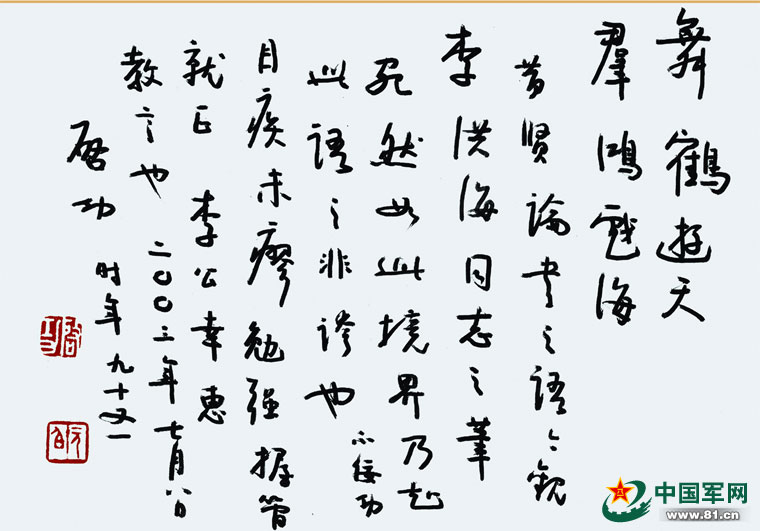 舞鶴遊天
羣鴻戲海
昔賢論書之語今觀
李洪海同志之筆
宛然如此境界乃知
此語之非誇也
不佞功
目疾未瘳勉強握管
就正 李公幸惠
教之也 二〇〇三年七月八日
启功 时年九十又一
中国军网
www.81.cn